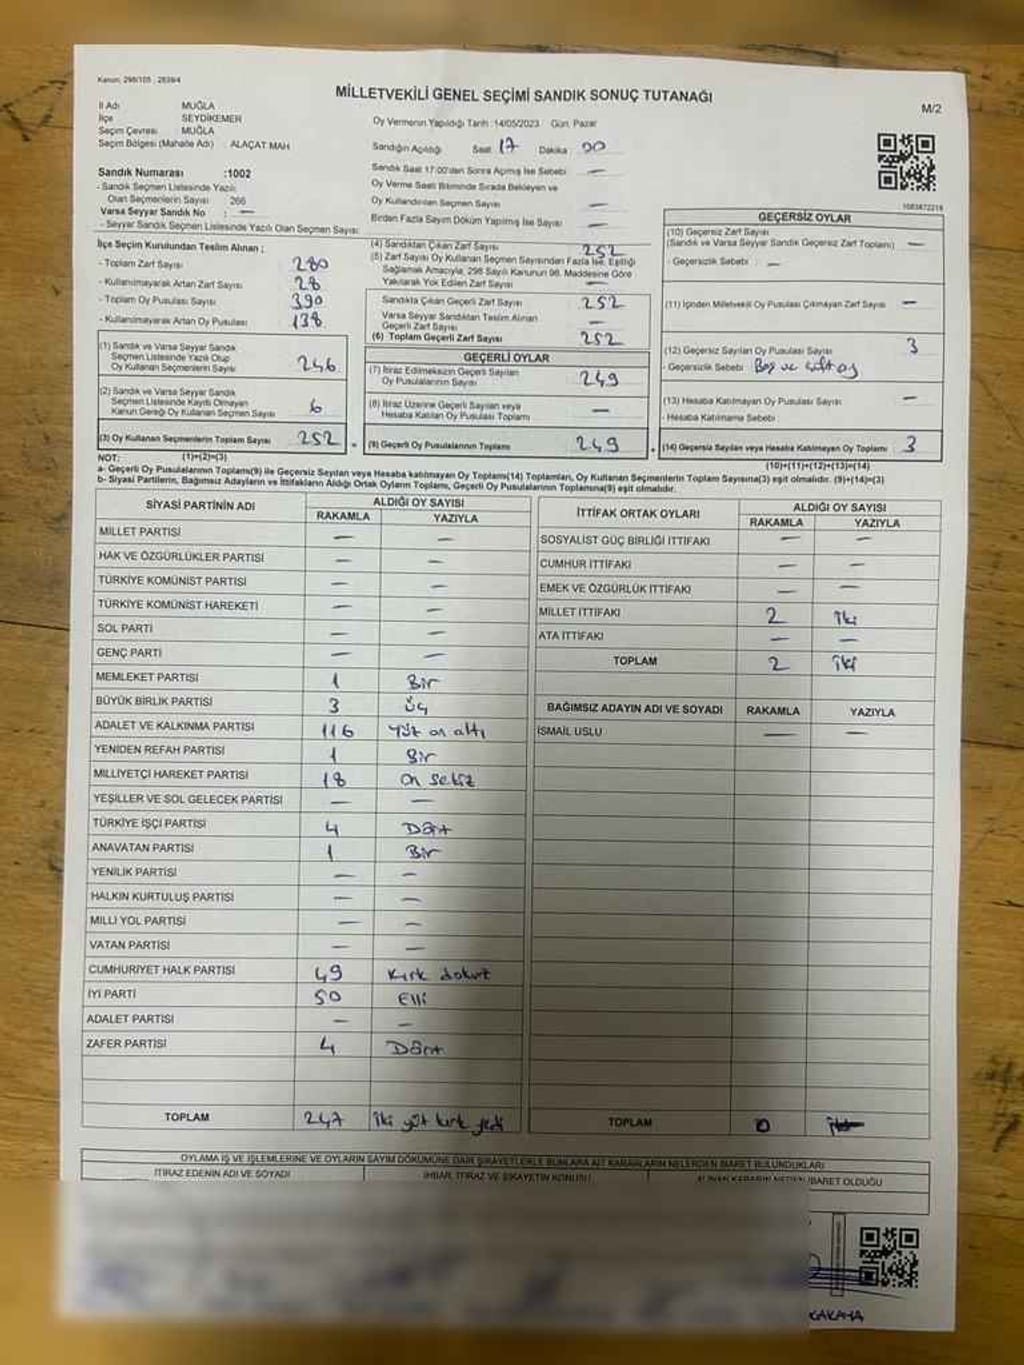 Kanun: 298/105 ; 2839/4
MİLLETVEKİLİ GENEL SEÇİMİ SANDIK SONUÇ TUTANAĞI
M/2
İl Adı MUĞLA
İlçe SEYDİKEMER
Seçim Çevresi MUĞLA
Seçim Bölgesi (Mahalle Adı) : ALAÇAT MAH
Oy Vermenin Yapıldığı Tarih :14/05/2023 Gün: Pazar
Sandığın Açıldığı Saat 17 Dakika 00
Sandık Numarası :1002
- Sandık Seçmen Listesinde Yazılı
Olan Seçmenlerin Sayısı 266
Varsa Seyyar Sandık No : —
- Seyyar Sandık Seçmen Listesinde Yazılı Olan Seçmen Sayısı:
Sandık Saat 17:00'den Sonra Açılmış İse Sebebi —
Oy Verme Saati Bitiminde Sırada Bekleyen ve
Oy Kullandırılan Seçmen Sayısı —
Birden Fazla Sayım Döküm Yapılmış İse Sayısı —
1083472218
İlçe Seçim Kurulundan Teslim Alınan ;
- Toplam Zarf Sayısı 280
- Kullanılmayarak Artan Zarf Sayısı 28
- Toplam Oy Pusulası Sayısı 390
- Kullanılmayarak Artan Oy Pusulası 138
(1) Sandık ve Varsa Seyyar Sandık
Seçmen Listesinde Yazılı Olup
Oy Kullanan Seçmenlerin Sayısı 246
(2) Sandık ve Varsa Seyyar Sandık
Seçmen Listesinde Kayıtlı Olmayan
Kanun Gereği Oy Kullanan Seçmen Sayısı 6
(3) Oy Kullanan Seçmenlerin Toplam Sayısı 252
(4) Sandıktan Çıkan Zarf Sayısı 252
(5) Zarf Sayısı Oy Kullanan Seçmen Sayısından Fazla İse, Eşitliği
Sağlamak Amacıyla, 298 Sayılı Kanunun 98. Maddesine Göre
Yakılarak Yok Edilen Zarf Sayısı —
Sandıkta Çıkan Geçerli Zarf Sayısı 252
Varsa Seyyar Sandıktan Teslim Alınan
Geçerli Zarf Sayısı —
(6) Toplam Geçerli Zarf Sayısı 252
GEÇERLİ OYLAR
(7) İtiraz Edilmeksizin Geçerli Sayılan
Oy Pusulalarının Sayısı 249
(8) İtiraz Üzerine Geçerli Sayılan veya
Hesaba Katılan Oy Pusulaları Toplamı —
(9) Geçerli Oy Pusulalarının Toplamı 249
GEÇERSİZ OYLAR
(10) Geçersiz Zarf Sayısı
(Sandık ve Varsa Seyyar Sandık Geçersiz Zarf Toplamı) —
- Geçersizlik Sebebi : —
(11) İçinden Milletvekili Oy Pusulası Çıkmayan Zarf Sayısı —
(12) Geçersiz Sayılan Oy Pusulası Sayısı 3
- Geçersizlik Sebebi Boş ve çift oy
(13) Hesaba Katılmayan Oy Pusulası Sayısı —
- Hesaba Katılmama Sebebi :
(14) Geçersiz Sayılan veya Hesaba Katılmayan Oy Toplamı 3
NOT: (1)+(2)=(3)
(10)+(11)+(12)+(13)=(14)
a- Geçerli Oy Pusulalarının Toplamı(9) ile Geçersiz Sayılan veya Hesaba katılmayan Oy Toplamı(14) Toplamları, Oy Kullanan Seçmenlerin Toplam Sayısına(3) eşit olmalıdır. (9)+(14)=(3)
b- Siyasi Partilerin, Bağımsız Adayların ve İttifakların Aldığı Ortak Oyların Toplamı, Geçerli Oy Pusulalarının Toplamına(9) eşit olmalıdır.
SİYASİ PARTİNİN ADI ALDIĞI OY SAYISI
RAKAMLA YAZIYLA
MİLLET PARTİSİ — —
HAK VE ÖZGÜRLÜKLER PARTİSİ — —
TÜRKİYE KOMÜNİST PARTİSİ — —
TÜRKİYE KOMÜNİST HAREKETİ — —
SOL PARTİ — —
GENÇ PARTİ — —
MEMLEKET PARTİSİ 1 Bir
BÜYÜK BİRLİK PARTİSİ 3 Üç
ADALET VE KALKINMA PARTİSİ 116 Yüz on altı
YENİDEN REFAH PARTİSİ 1 Bir
MİLLİYETÇİ HAREKET PARTİSİ 18 On sekiz
YEŞİLLER VE SOL GELECEK PARTİSİ — —
TÜRKİYE İŞÇİ PARTİSİ 4 Dört
ANAVATAN PARTİSİ 1 Bir
YENİLİK PARTİSİ — —
HALKIN KURTULUŞ PARTİSİ — —
MİLLİ YOL PARTİSİ — —
VATAN PARTİSİ — —
CUMHURİYET HALK PARTİSİ 49 Kırk dokuz
İYİ PARTİ 50 Elli
ADALET PARTİSİ — —
ZAFER PARTİSİ 4 Dört
TOPLAM 247 İki yüz kırk yedi
İTTİFAK ORTAK OYLARI ALDIĞI OY SAYISI
RAKAMLA YAZIYLA
SOSYALİST GÜÇ BİRLİĞİ İTTİFAKI — —
CUMHUR İTTİFAKI — —
EMEK VE ÖZGÜRLÜK İTTİFAKI — —
MİLLET İTTİFAKI 2 İki
ATA İTTİFAKI — —
TOPLAM 2 İki
BAĞIMSIZ ADAYIN ADI VE SOYADI RAKAMLA YAZIYLA
İSMAİL USLU — —
TOPLAM 0
OYLAMA İŞ VE İŞLEMLERİNE VE OYLARIN SAYIM DÖKÜMÜNE DAİR ŞİKAYETLERLE BUNLARA AİT KARARLARIN NELERDEN İBARET BULUNDUKLARI
İTİRAZ EDENİN ADI VE SOYADI İHBAR, İTİRAZ VE ŞİKAYETİN KONUSU ALINAN KARARIN NEDEN İBARET OLDUĞU